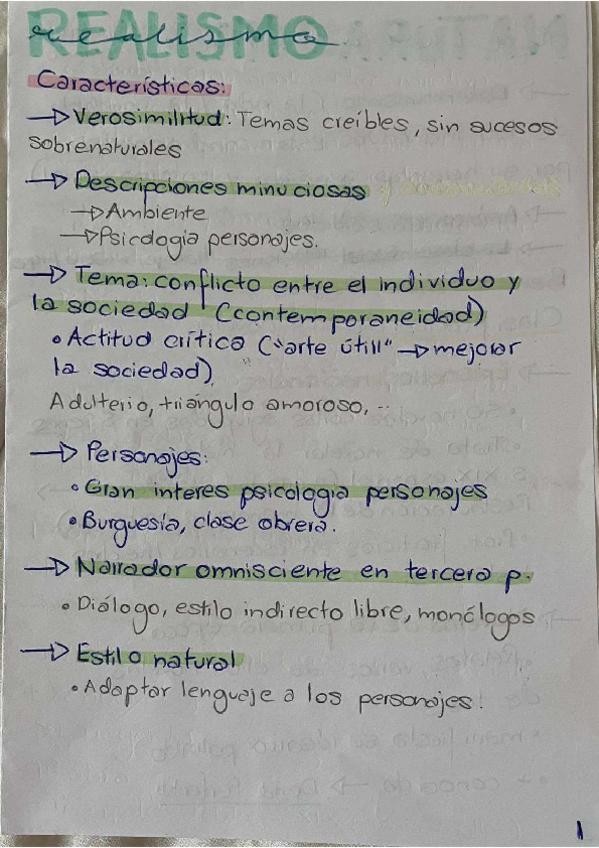 REALISMO
realismo
Características:
→ Verosimilitud: Temas creíbles, sin sucesos
sobrenaturales
→ Descripciones minuciosas
→ Ambiente
→ Psicología personajes.
→ Tema: conflicto entre el individuo y
la sociedad (contemporaneidad)
• Actitud crítica ("arte útill" → mejorar
la sociedad)
Adulterio, triángulo amoroso, ...
→ Personajes:
• Gran interes psicologia personajes
• Burguesía, clase obrera.
→ Narrador omnisciente en tercera p.
• Diálogo, estilo indirecto libre, monólogos
→ Estilo natural
• Adaptar lenguaje a los personajes.
1